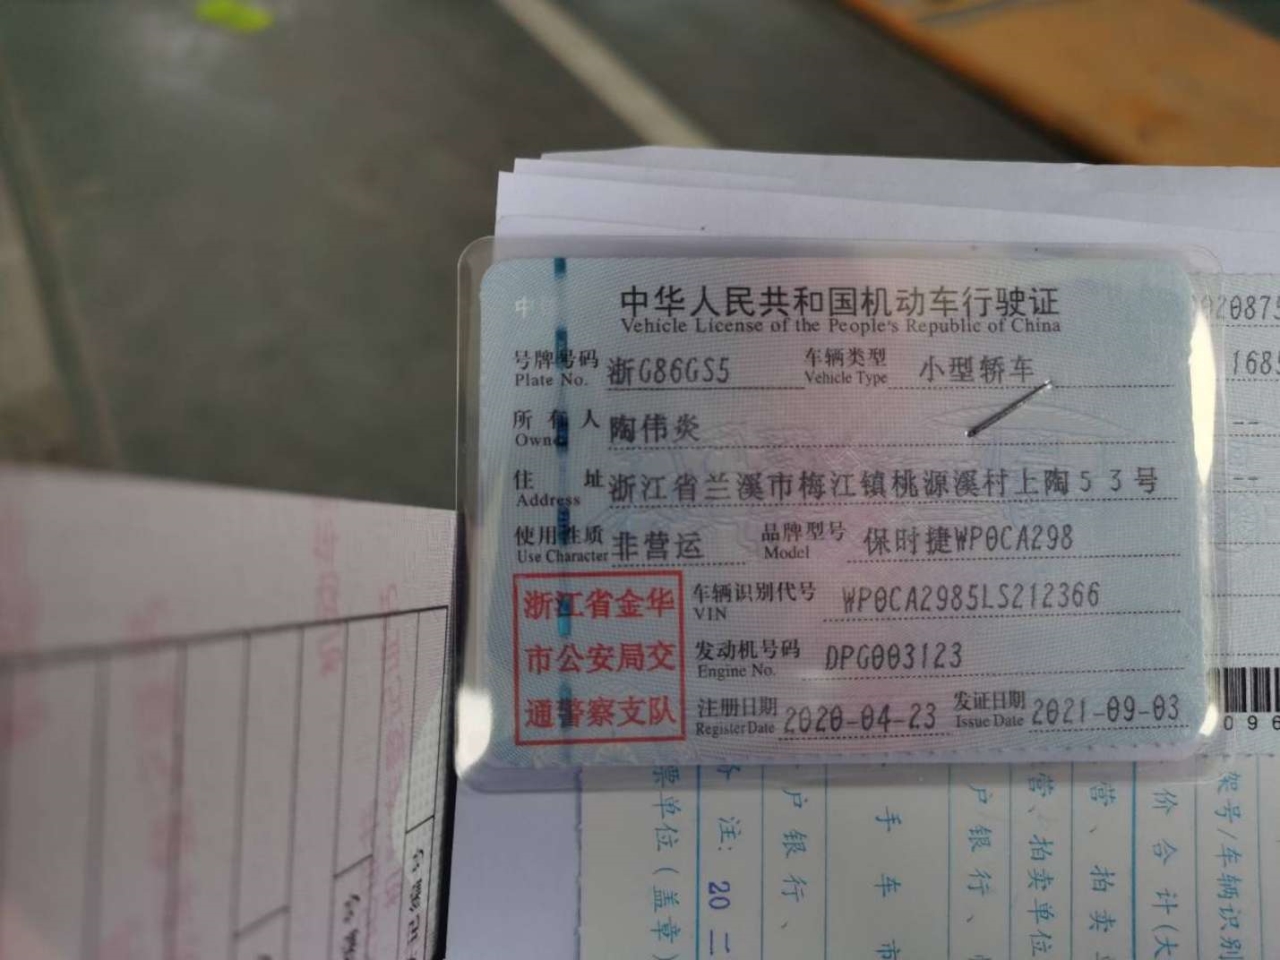 中华人民共和国机动车行驶证
Vehicle License of the People's Republic of China
号牌号码 浙G86GS5 车辆类型 小型轿车
Plate No. Vehicle Type
所有人 陶伟炎
Owner
住址 浙江省兰溪市梅江镇桃源溪村上陶53号
Address
使用性质 非营运 品牌型号 保时捷WP0CA298
Use Character Model
浙江省金华
市公安局交
通警察支队
车辆识别代号 WP0CA2985LS212366
VIN
发动机号码 DPG003123
Engine No.
注册日期 2020-04-23 发证日期 2021-09-03
Register Date Issue Date
020875
1685
--
--
096
架号/车辆识别
价合计(大
营、拍卖
营、拍卖单位
户银行、
手车市
户银行、
注: 20 二
票单位(盖章)